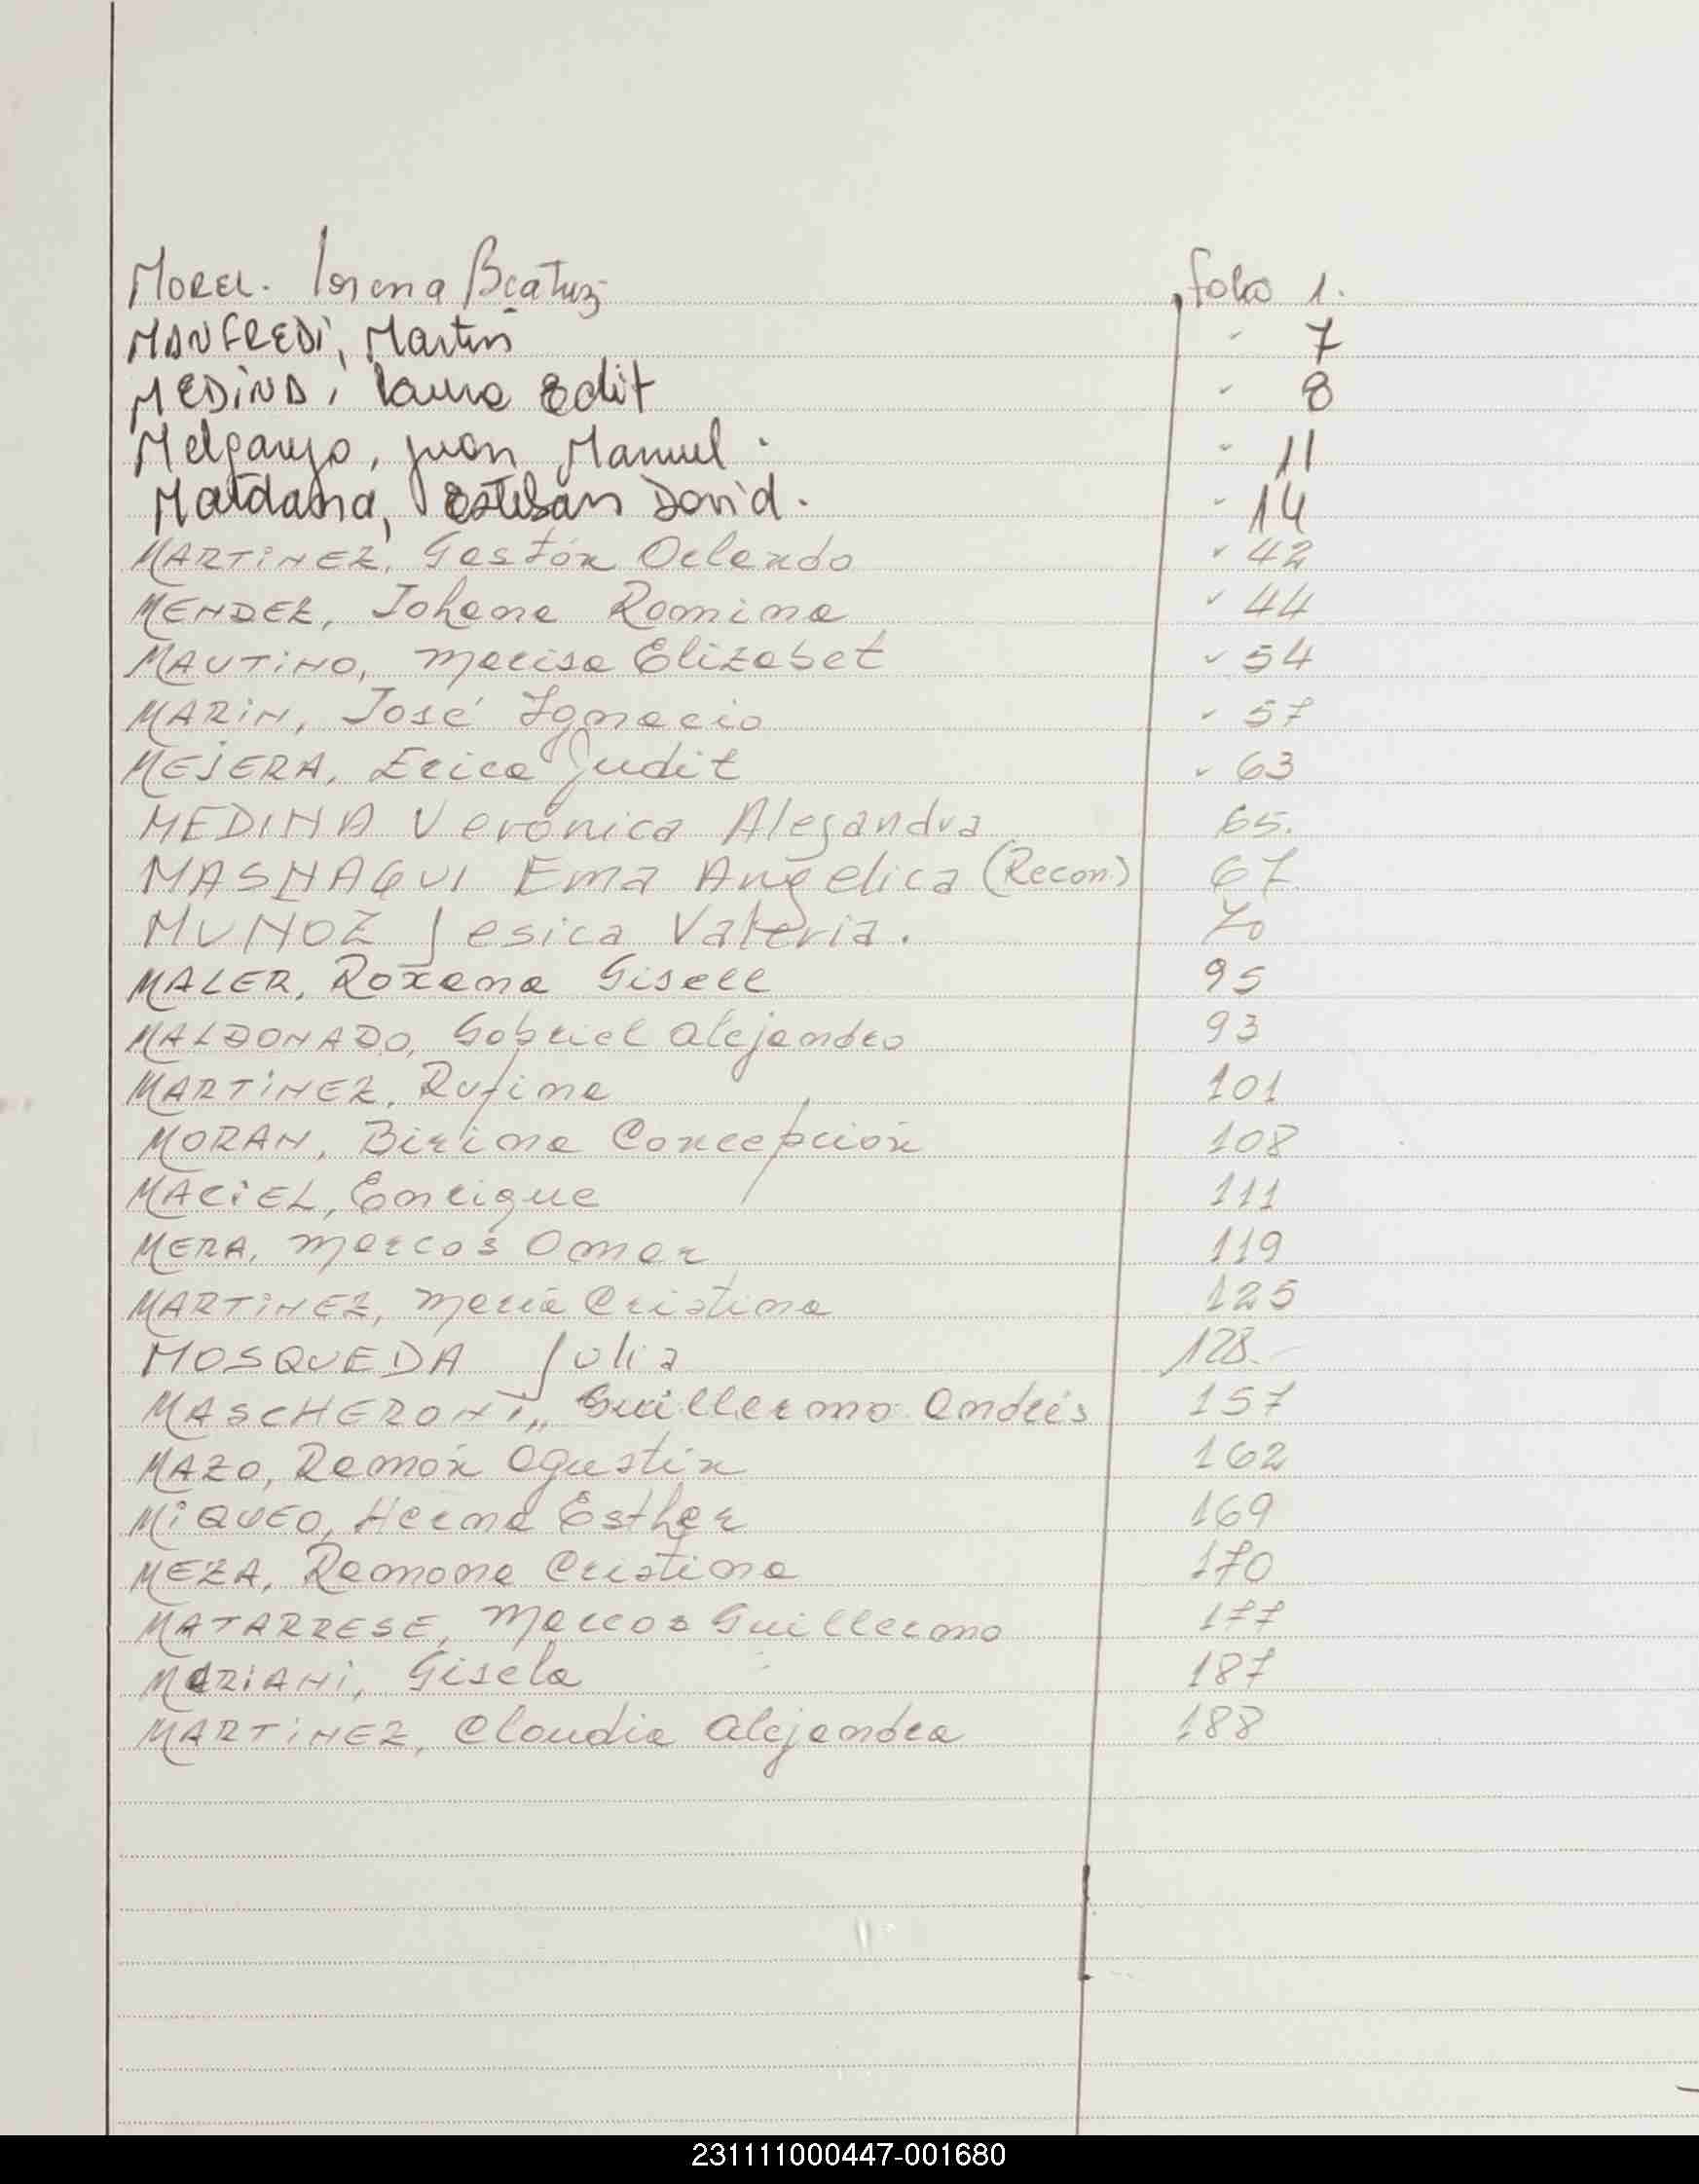 MOREL. Lorena Beatriz folio 1.
MANFREDi, Martin " 7
MEDiNA, Laura Edit " 8
Melgarejo, Juan Manuel. " 11
Maidana, Esteban David. " 14
MARTiNEZ, Gastón Orlando " 42
MENDEZ, Johana Romina " 44
MAUTiNO, Marisa Elizabet " 54
MARiN, José Ignacio " 57
MEJERA, Erica Judit " 63
MEDINA Verónica Alejandra 65.
MASNAQUI Ema Angelica (Recon.) 67
MUNOZ Jesica Valeria. 70
MALER, Roxana Gisell 95
MALDONADO, Gabriel Alejandro 93
MARTiNEZ, Rufina 101
MORAN, Birina Concepción 108
MACiEL, Enrique 111
MERA, Marcos Omar 119
MARTiNEZ, María Cristina 125
MOSQUEDA Julia 128.
MASCHERONi, Guillermo Andrés 157
MAZO, Ramón Agustín 162
MiQUEO, Herma Esther 169
MEZA, Ramona Cristina 170
MATARRESE, Marcos Guillermo 177
MARiANi, Gisela 187
MARTiNEZ, Claudia Alejandra 188
231111000447-001680